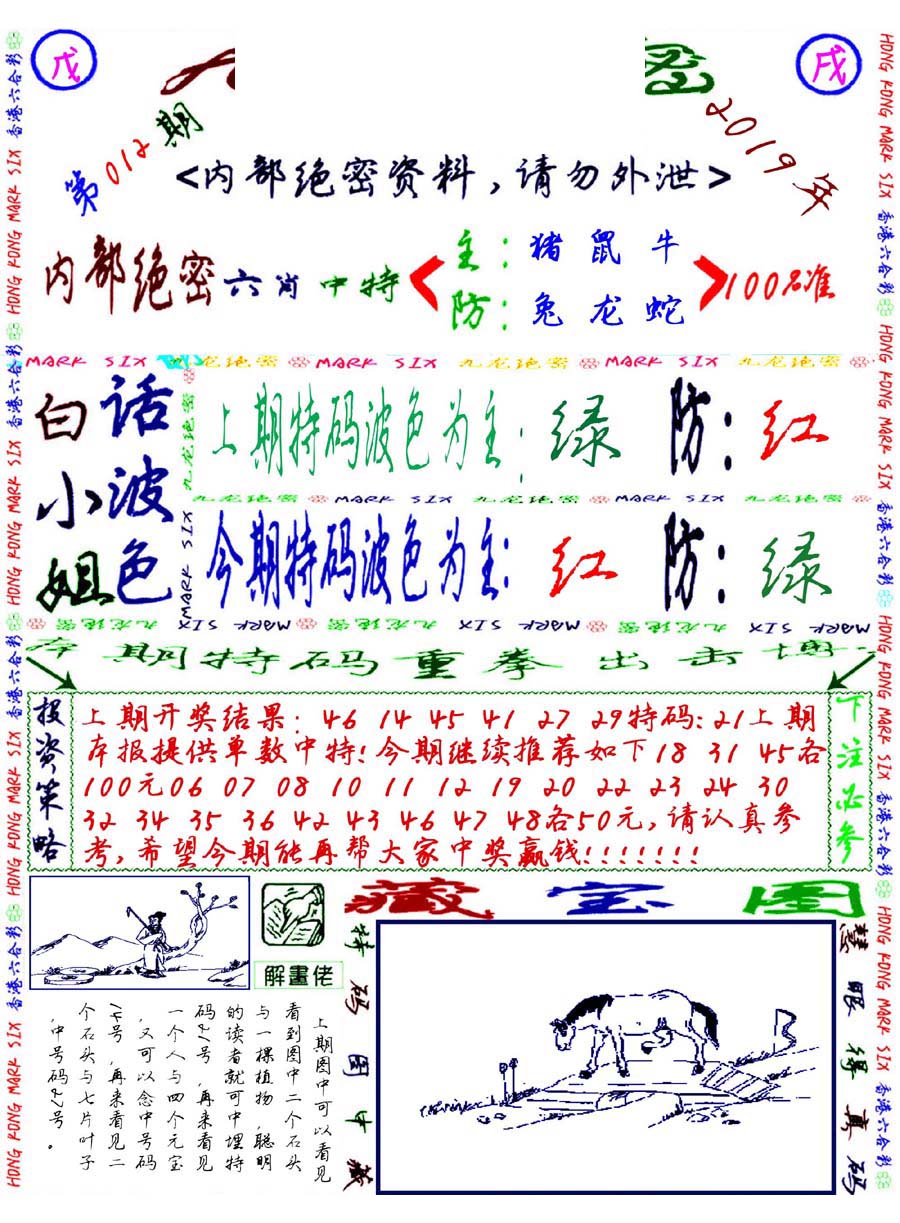 戊
戌
第012期
2019年
<内部绝密资料,请勿外泄>
内部绝密六肖中特
主:猪 鼠 牛
防:兔 龙 蛇
100%准
MARK SIX 九龙绝密 MARK SIX 九龙绝密 MARK SIX 九龙绝密
白小姐
话波色
上期特码波色为主:绿 防:红
九龙绝密 MARK SIX 九龙绝密 MARK SIX 九龙绝密
今期特码波色为主:红 防:绿
九龙绝密 MARK SIX 九龙绝密 MARK SIX 九龙绝密 MARK SIX
本期特码重拳出击博
投资策略
上期开奖结果: 46 14 45 41 27 29特码:21上期
本报提供单数中特!今期继续推荐如下18 31 45各
100元06 07 08 10 11 12 19 20 22 23 24 30
32 34 35 36 42 43 46 47 48各50元,请认真参
考,希望今期能再帮大家中奖赢钱!!!!!!!
下注必参
藏宝图
解畫佬
上期图中可以看见
看到图中二个石头
与一棵植物,聪明
的读者就可中埋特
码21号,再来看见
一个人与四个元宝
,又可以念中号码
14号,再来看见二
个石头与七片叶子
,中号码27号。
特码图中藏
慧眼得真码
HONG KONG MARK SIX 香港六合彩 HONG KONG MARK SIX 香港六合彩 HONG KONG MARK SIX 香港六合彩 HONG KONG MARK SIX 香港六合彩
HONG KONG MARK SIX 香港六合彩 HONG KONG MARK SIX 香港六合彩 HONG KONG MARK SIX 香港六合彩 HONG KONG MARK SIX 香港六合彩